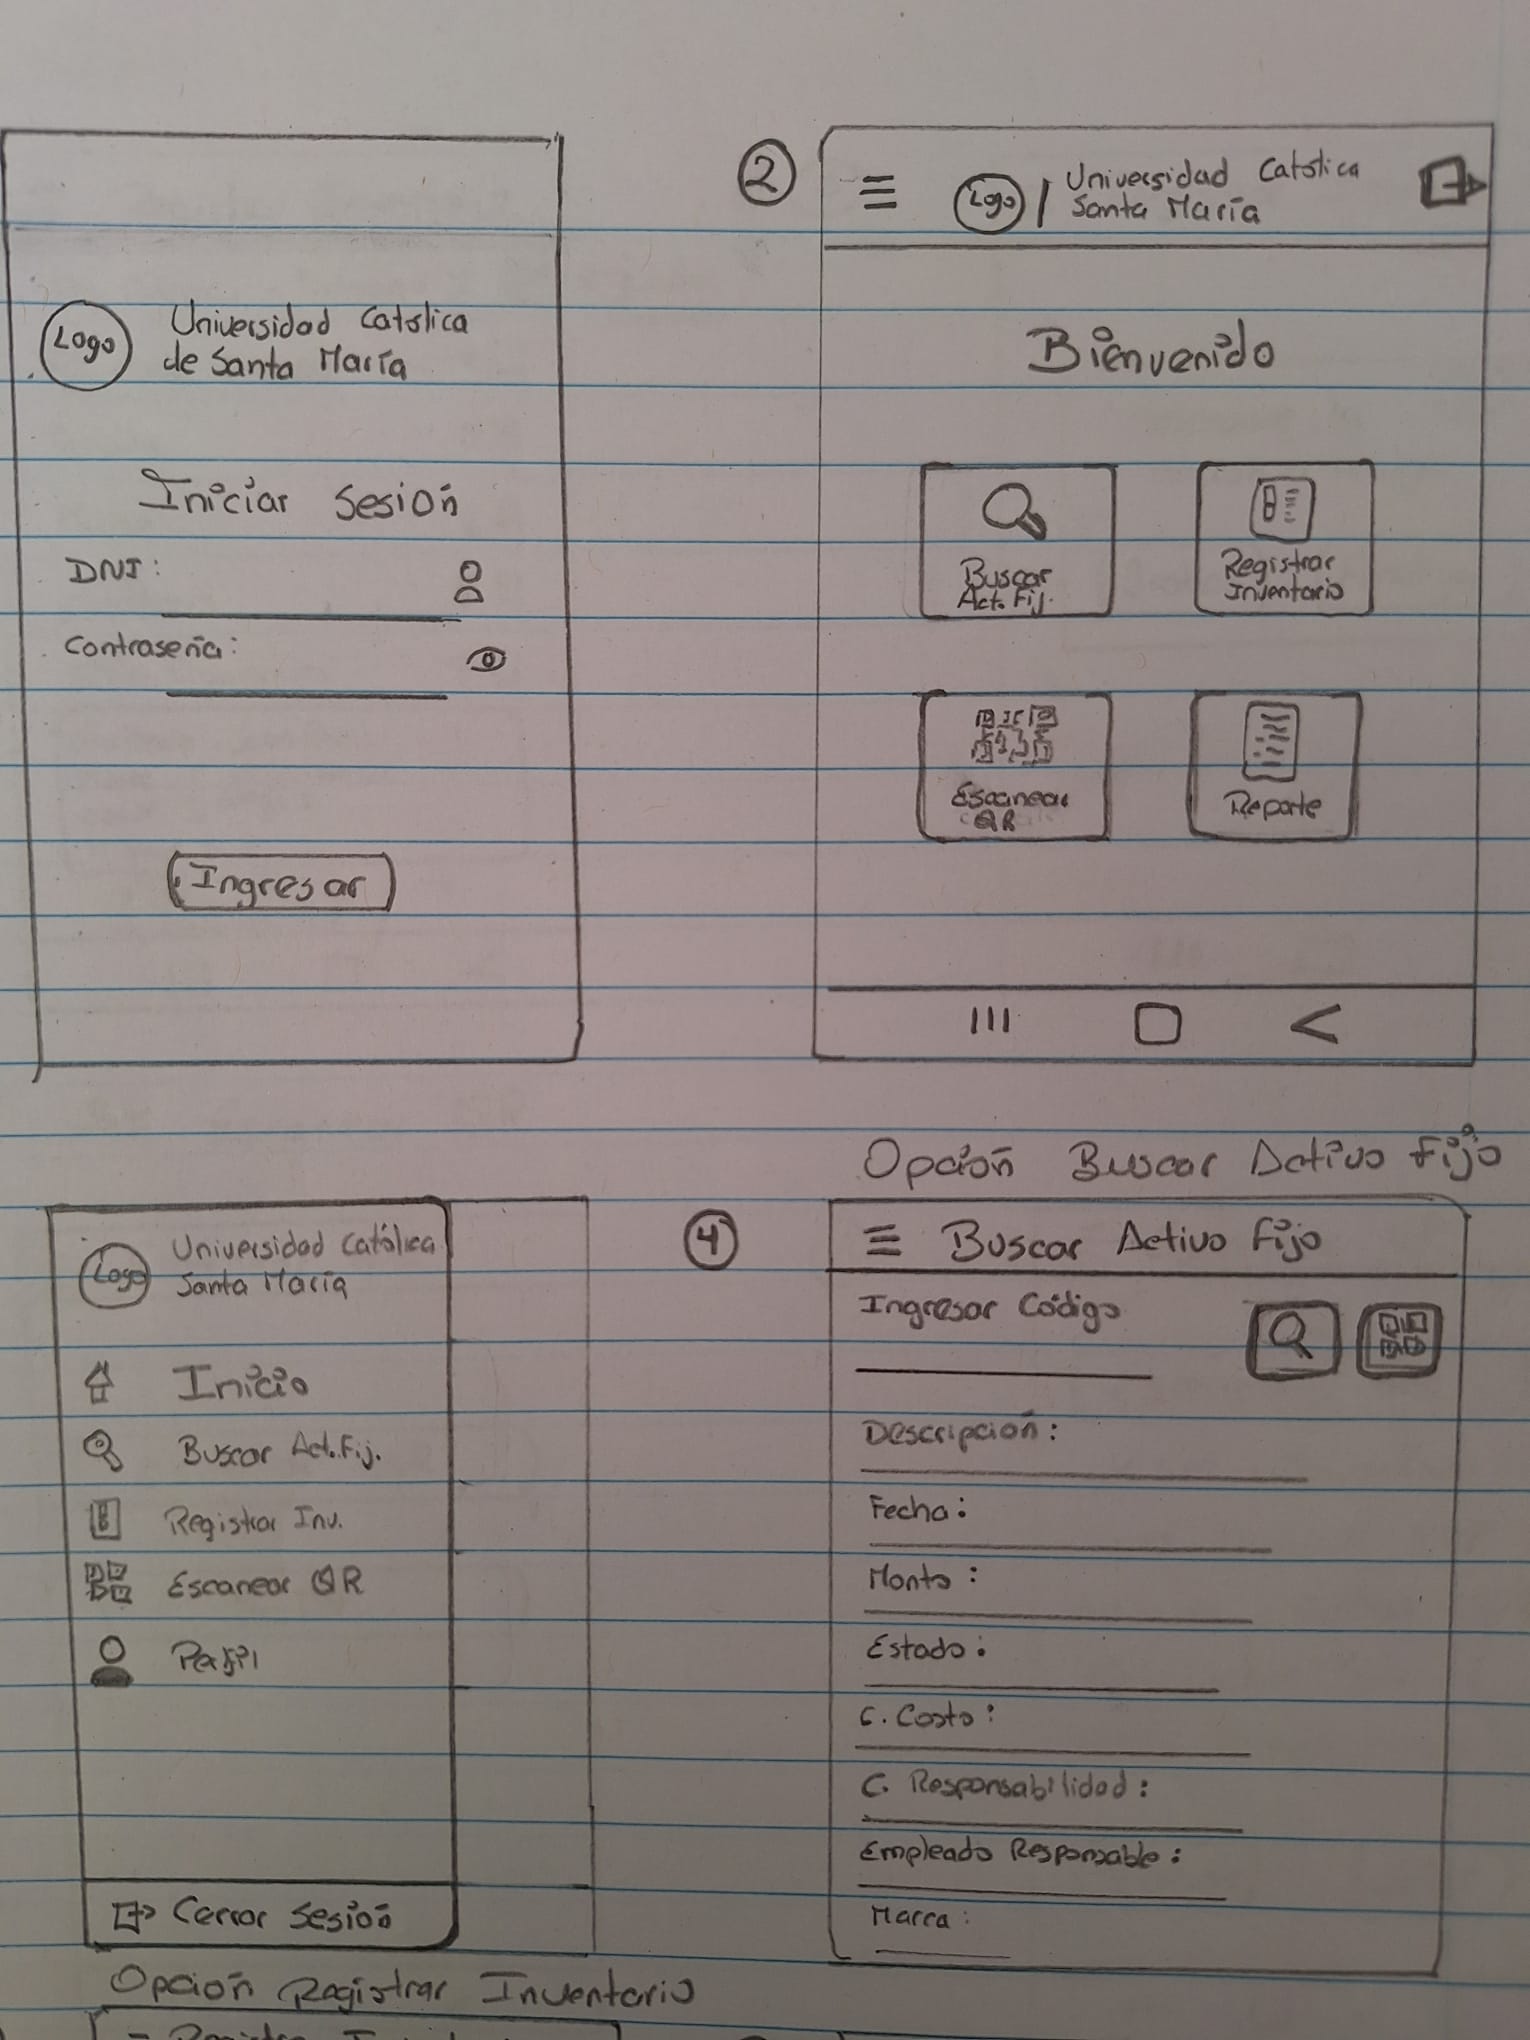 Logo
Universidad Católica
de Santa María
Iniciar Sesión
DNI:
Contraseña:
Ingresar
2
Logo
Universidad Católica
Santa María
Bienvenido
Buscar
Act. Fij.
Registrar
Inventario
Escanear
QR
Reporte
Logo
Universidad Católica
Santa María
Inicio
Buscar Act. Fij.
Registrar Inv.
Escanear QR
Perfil
Cerrar Sesión
Opción Buscar Activo Fijo
4
Buscar Activo Fijo
Ingresar Código
Descripción:
Fecha:
Monto:
Estado:
C. Costo:
C. Responsabilidad:
Empleado Responsable:
Marca:
Opción Registrar Inventario